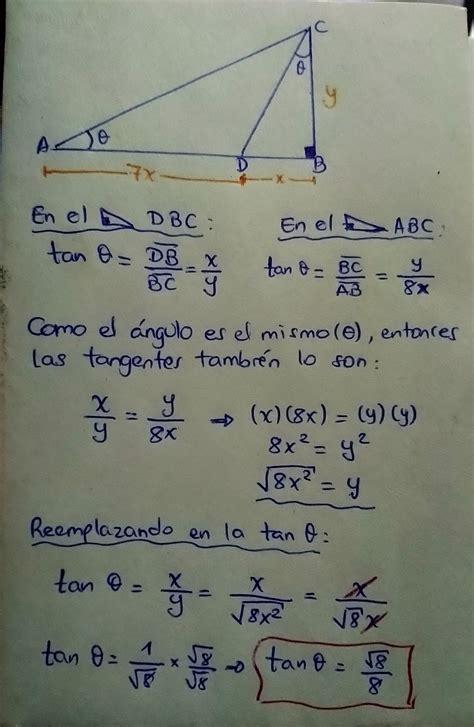 C
θ
y
A θ D B
7x x
En el ◺ DBC: En el ◺ ABC:
tan θ = DB/BC = x/y tan θ = BC/AB = y/8x
Como el ángulo es el mismo (θ), entonces
las tangentes también lo son:
x/y = y/8x → (x)(8x) = (y)(y)
8x² = y²
√8x² = y
Reemplazando en la tan θ:
tan θ = x/y = x/√8x² = x/√8x
tan θ = 1/√8 × √8/√8 → tan θ = √8/8